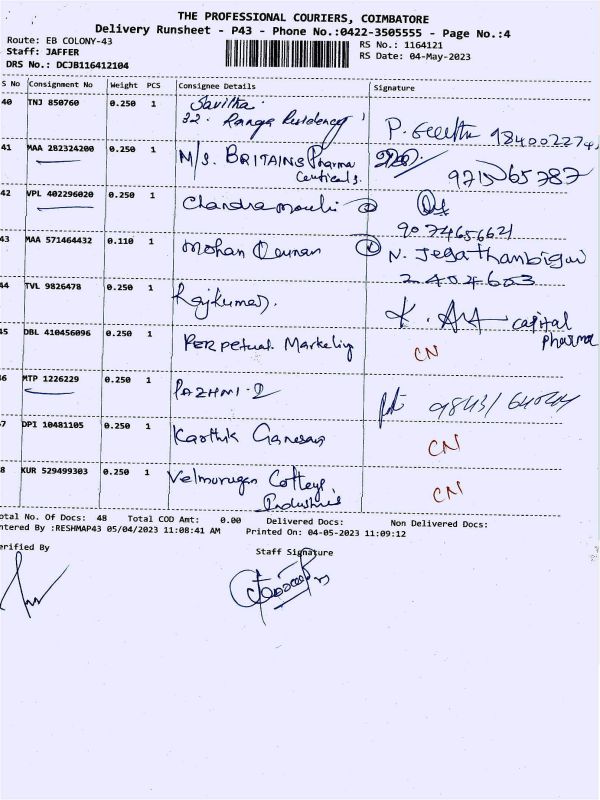 THE PROFESSIONAL COURIERS, COIMBATORE
Delivery Runsheet - P43 - Phone No.:0422-3505555 - Page No.:4
Route: EB COLONY-43
RS No.: 1164121
Staff: JAFFER
RS Date: 04-May-2023
DRS No.: DCJB116412104
S No Consignment No Weight PCS Consignee Details Signature
40 TNJ 850760 0.250 1 Savitha
32. Ranga Residency
P. Geetha 984002274
41 MAA 282324200 0.250 1 M/S. BRITAINS Pharma
Ceuticals.
9715065787
42 VPL 402296020 0.250 1 Chandramouli
9074656621
43 MAA 571464432 0.110 1 Mohan N. Jegathambigai
2404603
44 TVL 9826478 0.250 1 Rajkumar. K. capital
pharma
45 DBL 410456096 0.250 1 Perpetual Marketing CN
46 MTP 1226229 0.250 1 PAZHNI-2
47 DPI 10481105 0.250 1 Karthik Ganesan CN
48 KUR 529499303 0.250 1 Velmurugan Cottage
Industries
CN
otal No. Of Docs: 48 Total COD Amt: 0.00 Delivered Docs: Non Delivered Docs:
ntered By :RESHMAP43 05/04/2023 11:08:41 AM Printed On: 04-05-2023 11:09:12
erified By
Staff Signature